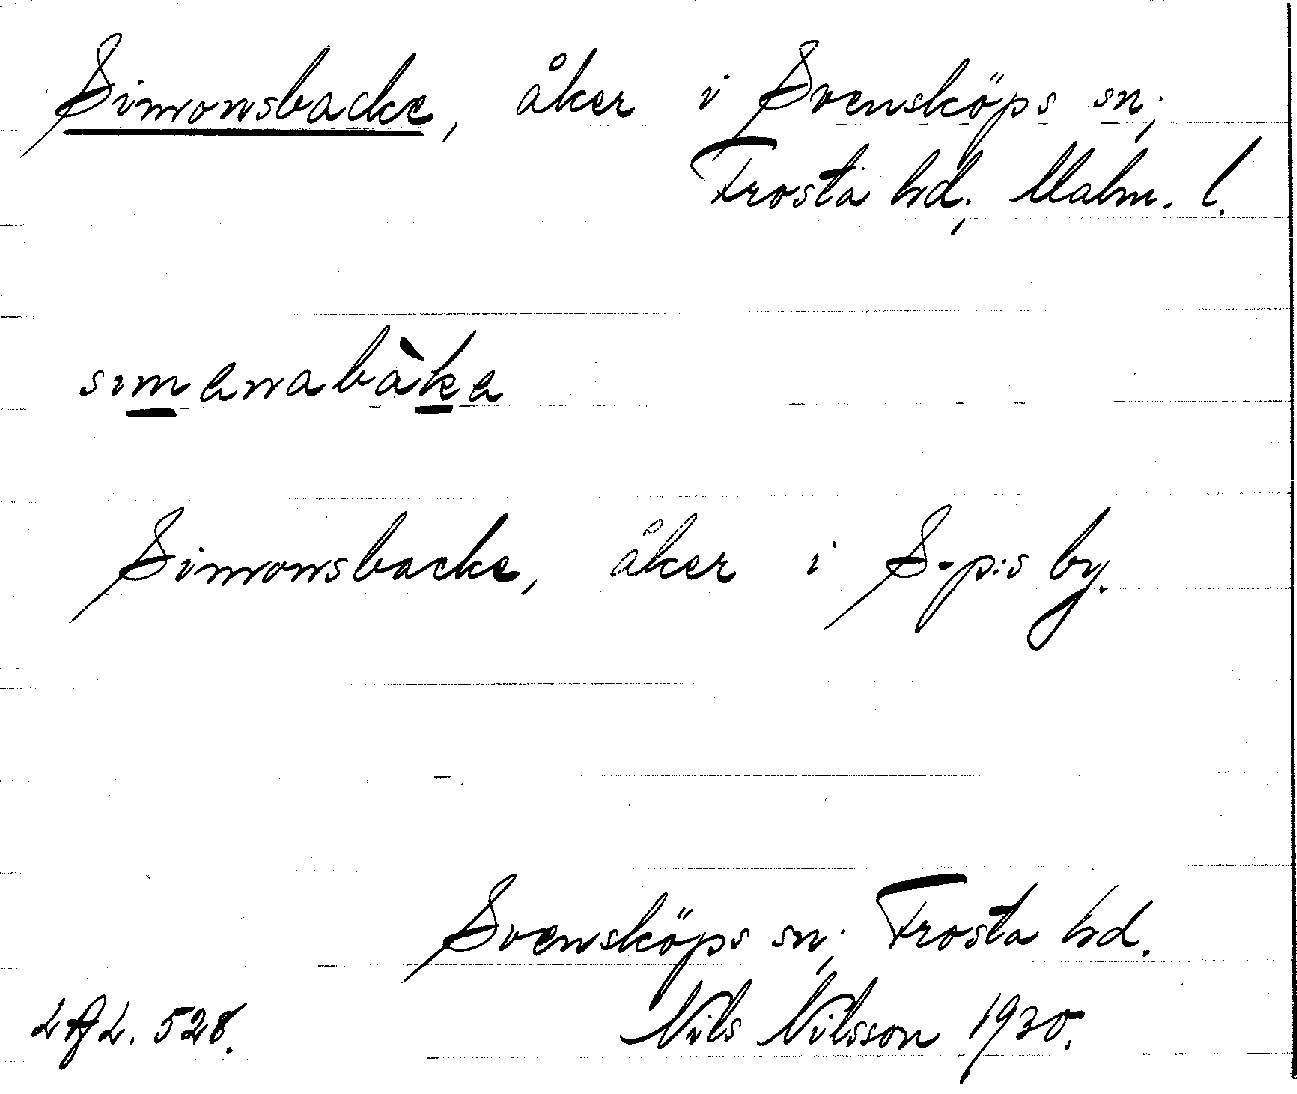 Simonsbacke, åker i Svensköps sn;
Frosta hd; Malm. l.
simanabàka
Simonsbacke, åker i S-p:s by.
Svensköps sn; Frosta hd.
LAL. 528. Nils Nilsson 1930.